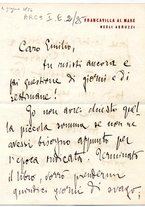 ARCS I E 2/25
FRANCAVILLA AL MARE
NEGLI ABRUZZI
Caro Emilio,
tu insisti ancora e
fai questione di giorni e di
settimane!
Io non avrei chiesto quel
la piccola somma se non ne
avessi bisogno appunto per
l'epoca indicata. Terminato
il libro, vorrei prendermi
quindici giorni di svago.